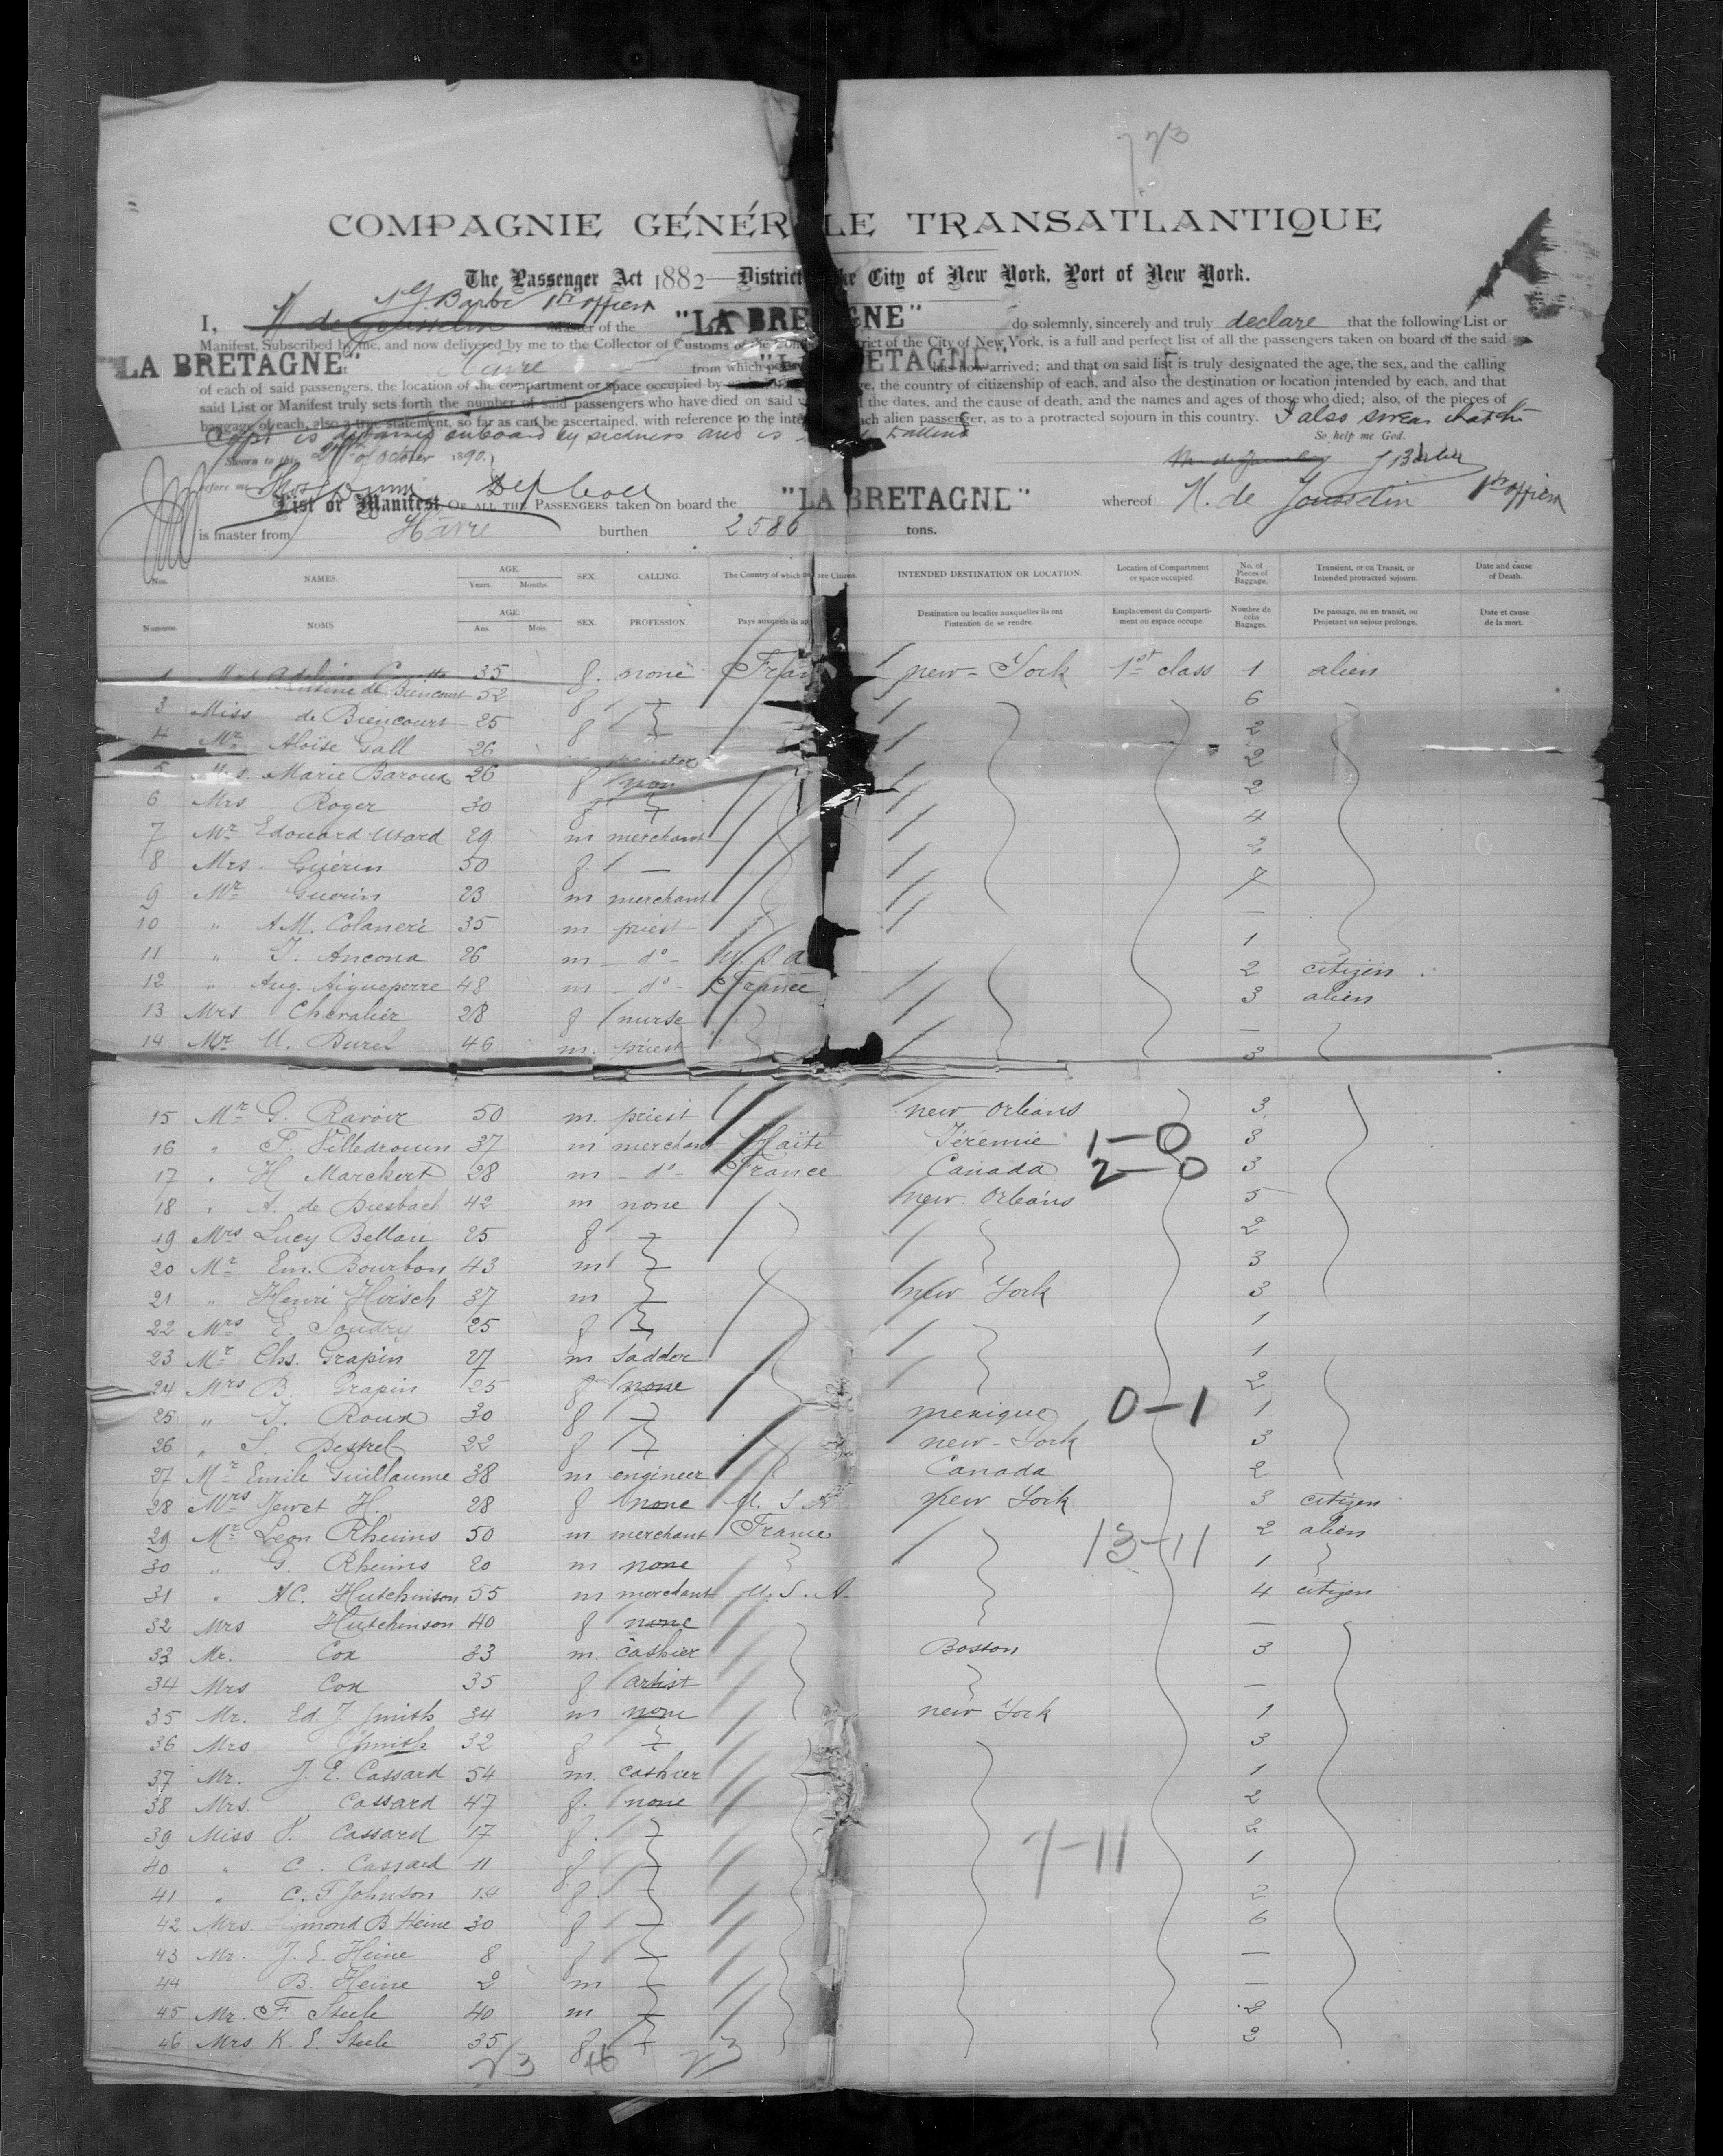 773
COMPAGNIE GÉNÉR LE TRANSATLANTIQUE
The Passenger Act 1882—District the City of New York, Port of New York.
J. Barbe 1st officer
I, N. de Jousselin Master of the "LA BRETAGNE" do solemnly, sincerely and truly declare that the following List or
Manifest, Subscribed by me, and now delivered by me to the Collector of Customs of the trict of the City of New York, is a full and perfect list of all the passengers taken on board of the said
"LA BRETAGNE" at Havre from which "LA BRETAGNE" has now arrived; and that on said list is truly designated the age, the sex, and the calling
of each of said passengers, the location of the compartment or space occupied by the country of citizenship of each, and also the destination or location intended by each, and that
said List or Manifest truly sets forth the number of said passengers who have died on said the dates, and the cause of death, and the names and ages of those who died; also, of the pieces of
baggage of each, also a true statement, so far as can be ascertained, with reference to the inte ach alien passenger, as to a protracted sojourn in this country. I also swear that the
Capt is detained onboard by sickness and is
So help me God.
Sworn to this of October 1890.
J Barbe
before me
List or Manifest OF ALL THE PASSENGERS taken on board the "LA BRETAGNE" whereof N. de Jousselin 1st officer
is master from Havre burthen 2586 tons.
Nos. NAMES. AGE. Years. Months. SEX. CALLING. The Country of which are Citizens. INTENDED DESTINATION OR LOCATION. Location of Compartment or space occupied. No. of Pieces of Baggage. Transient, or on Transit, or Intended protracted sojourn. Date and cause of Death.
Numeros. NOMS AGE. Ans. Mois. SEX. PROFESSION. Pays auxquels ils ap Destination ou localite auxquelles ils ont l'intention de se rendre. Emplacement du Comparti- ment ou espace occupe. Nombre de colis Bagages. De passage, ou en transit, ou Projetant un sejour prolonge. Date et cause de la mort.
1 Mrs 35 f. none Fran new-York 1st class 1 alien
de Biencourt 52 f 6
3 Miss de Biencourt 25 f 2
4 Mr Aloïse Gall 26 2
5 Mrs. Marie Baroux 26 f non 2
6 Mrs Roger 30 f 4
7 Mr Edouard Usard 29 m merchant 2
8 Mrs Guérin 50 f. — 7
9 Mr Guerin 23 m merchant —
10 " A.M. Colaneri 35 m priest 1
11 " J. Ancona 26 m - do - U. S A 2 citizen
12 " Aug. Aigueperre 48 m - do - France 3 alien
13 Mrs Chevalier 28 f nurse —
14 Mr U. Burel 46 m. priest 3
15 Mr G. Ravoir 50 m. priest new Orleans 3
16 " F. Villedrouin 37 m merchant Haïti Jérémie 1—0 3
17 " H Marckert 28 m - do - France Canada 2—0 3
18 " A. de Diesbach 42 m none new. Orleans 5
19 Mrs Lucy Bellair 25 f 2
20 Mr Em. Bourbon 43 m 3
21 " Henri Hirsch 37 m new York 3
22 Mrs E. Soudry 25 f 1
23 Mr Chs. Grapin 27 m sadder 1
24 Mrs B. Grapin 25 f none 2
25 " J. Roux 30 f mexique 0—1 1
26 " S. Destrel 22 f new-York 3
27 Mr Emile Guillaume 38 m engineer Canada 2
28 Mrs Jewet H. 28 f none U. S A new York 3 citizen
29 Mr Leon Rheims 50 m merchant France 13-11 2 alien
30 " G. Rheims 20 m none 1
31 " HC. Hutchinson 55 m merchant U. S. A. 4 citizen
32 Mrs Hutchinson 40 f none —
33 Mr. Cox 33 m. cashier Boston 3
34 Mrs Cox 35 f artist —
35 Mr. Ed. J. Smith 34 m none new York 1
36 Mrs Smith 32 f 3
37 Mr. J. E. Cassard 54 m. cashier 1
38 Mrs. Cassard 47 f. none 2
39 Miss H. Cassard 17 f. 2
40 " C. Cassard 11 f. 7-11 1
41 " C. F Johnson 14 f. 2
42 Mrs. B Heine 30 f 6
43 Mr. J. E. Heine 8 f —
44 B. Heine 2 m —
45 Mr. F. Steele 40 m 2
46 Mrs K. E. Steele 35 f 2